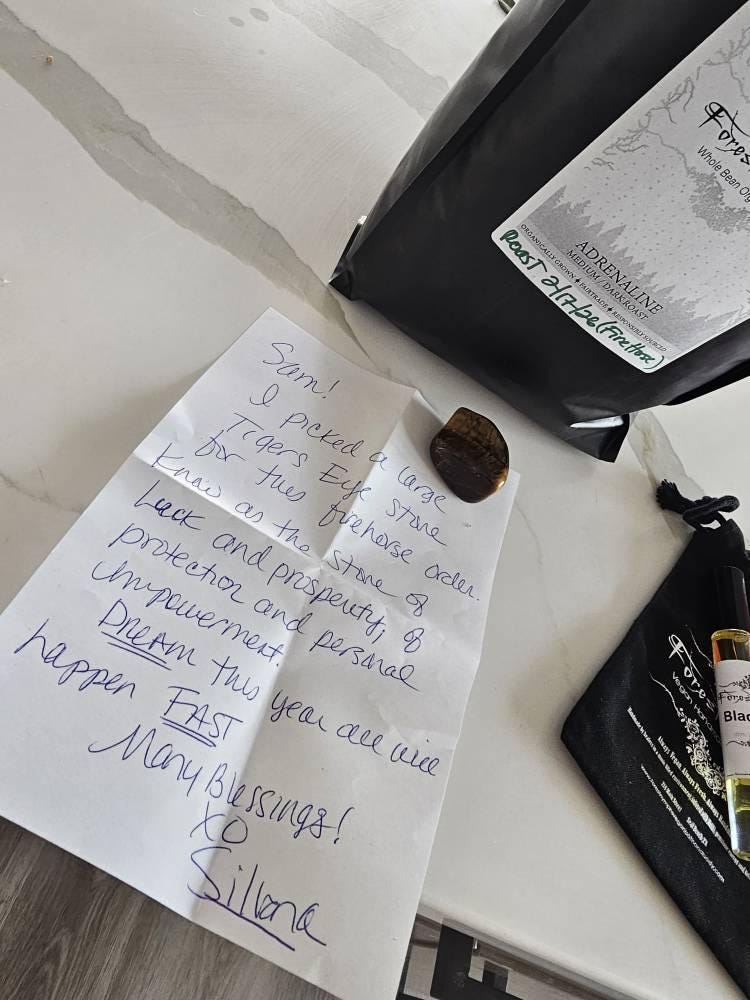 Sam!
I picked a large
Tigers Eye stone
for this firehorse order.
Know as the stone of
Luck and prosperity, of
protection and personal
Empowerment.
DREAM this year all will
happen FAST
Many Blessings!
XO
Silvana
Whole Bean
ADRENALINE
MEDIUM/DARK ROAST
ORGANICALLY GROWN ✦ FAIRTRADE ✦ RESPONSIBLY SOURCED
Roast 2/17/26 (FireHorse)
Vegan
Blac